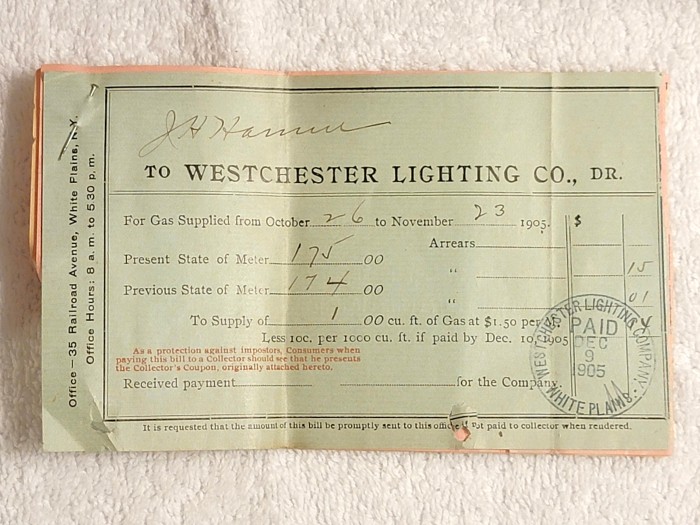 Office—35 Railroad Avenue, White Plains, N.Y.
Office Hours: 8 a.m. to 5.30 p.m.
J H
TO WESTCHESTER LIGHTING CO., DR.
For Gas Supplied from October 26 to November 23 1905. $
Arrears
Present State of Meter 175 00
" 15
Previous State of Meter 174 00
" 01
To Supply of 1 00 cu. ft. of Gas at $1.50 per M.
Less 10c. per 1000 cu. ft. if paid by Dec. 10, 1905
As a protection against impostors, Consumers when
paying this bill to a Collector should see that he presents
the Collector's Coupon, originally attached hereto.
Received payment for the Company.
It is requested that the amount of this bill be promptly sent to this office if not paid to collector when rendered.
WESTCHESTER LIGHTING COMPANY
PAID
DEC
9
1905
WHITE PLAINS.